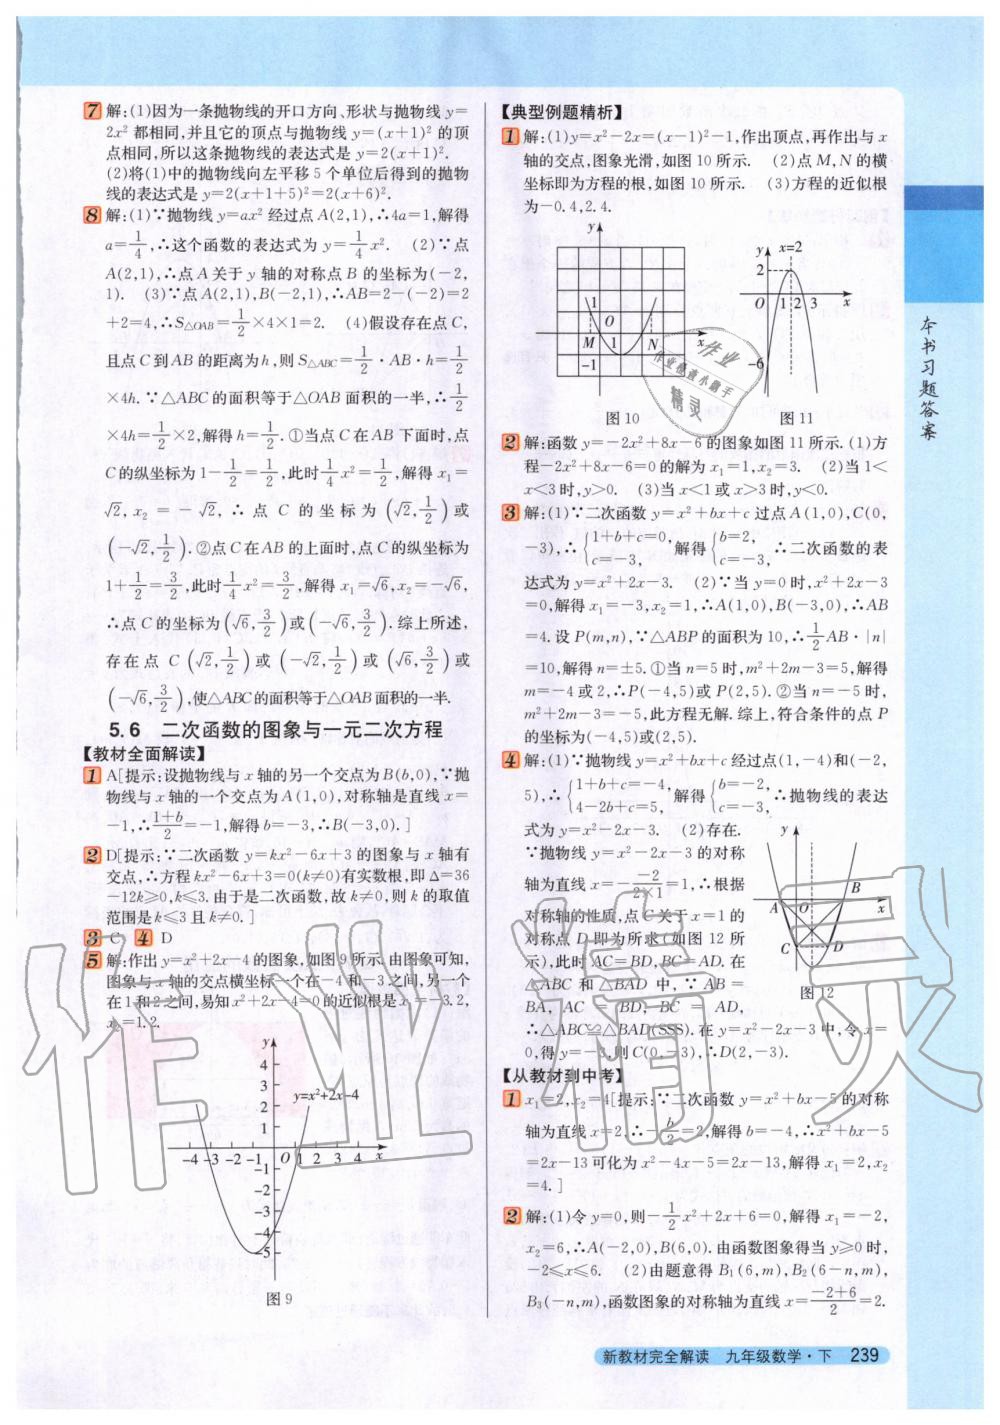 7 解:(1)因为一条抛物线的开口方向、形状与抛物线 y=
2x² 都相同,并且它的顶点与抛物线 y=(x+1)² 的顶
点相同,所以这条抛物线的表达式是 y=2(x+1)².
(2)将(1)中的抛物线向左平移 5 个单位后得到的抛物
线的表达式是 y=2(x+1+5)²=2(x+6)².
8 解:(1)∵抛物线 y=ax² 经过点 A(2,1),∴4a=1,解得
a=1/4,∴这个函数的表达式为 y=1/4x². (2)∵点
A(2,1),∴点 A 关于 y 轴的对称点 B 的坐标为(-2,
1). (3)∵点 A(2,1),B(-2,1),∴AB=2-(-2)=2
+2=4,∴S△OAB=1/2×4×1=2. (4)假设存在点 C,
且点 C 到 AB 的距离为 h,则 S△ABC=1/2·AB·h=1/2
×4h.∵△ABC 的面积等于△OAB 面积的一半,∴1/2
×4h=1/2×2,解得 h=1/2.①当点 C 在 AB 下面时,点
C 的纵坐标为 1-1/2=1/2,此时1/4x²=1/2,解得 x₁=
√2,x₂=-√2,∴点 C 的坐标为(√2,1/2)或
(-√2,1/2).②点 C 在 AB 的上面时,点 C 的纵坐标为
1+1/2=3/2,此时1/4x²=3/2,解得 x₁=√6,x₂=-√6,
∴点 C 的坐标为(√6,3/2)或(-√6,3/2).综上所述,
存在点 C(√2,1/2)或(-√2,1/2)或(√6,3/2)或
(-√6,3/2),使△ABC的面积等于△OAB面积的一半.
5.6 二次函数的图象与一元二次方程
【教材全面解读】
1 A[提示:设抛物线与 x 轴的另一个交点为 B(b,0),∵抛
物线与 x 轴的一个交点为 A(1,0),对称轴是直线 x=
-1,∴(1+b)/2=-1,解得 b=-3,∴B(-3,0).]
2 D[提示:∵二次函数 y=kx²-6x+3 的图象与 x 轴有
交点,∴方程 kx²-6x+3=0(k≠0)有实数根,即 Δ=36
-12k≥0,k≤3.由于是二次函数,故 k≠0,则 k 的取值
范围是 k≤3 且 k≠0.]
3 C 4 D
5 解:作出 y=x²+2x-4 的图象,如图 9 所示.由图象可知,
图象与 x 轴的交点横坐标一个在-4 和-3 之间,另一个
在 1 和 2 之间,易知 x²+2x-4=0 的近似根是 x₁=-3.2,
x₂=1.2.
y
4
3
2
1
y=x²+2x-4
-4 -3 -2 -1 O 1 2 3 4 x
-1
-2
-3
-4
-5
图 9
【典型例题精析】
1 解:(1)y=x²-2x=(x-1)²-1,作出顶点,再作出与 x
轴的交点,图象光滑,如图 10 所示. (2)点 M,N 的横
坐标即为方程的根,如图 10 所示. (3)方程的近似根
为-0.4,2.4.
y
1
O
M 1 N x
-1
图 10
y x=2
2
O 1 2 3 x
-6
图 11
2 解:函数 y=-2x²+8x-6 的图象如图 11 所示.(1)方
程-2x²+8x-6=0 的解为 x₁=1,x₂=3. (2)当 1<
x<3 时,y>0. (3)当 x<1 或 x>3 时,y<0.
3 解:(1)∵二次函数 y=x²+bx+c 过点 A(1,0),C(0,
-3),∴{1+b+c=0, c=-3, 解得{b=2, c=-3, ∴二次函数的表
达式为 y=x²+2x-3. (2)∵当 y=0 时,x²+2x-3
=0,解得 x₁=-3,x₂=1,∴A(1,0),B(-3,0),∴AB
=4.设 P(m,n),∵△ABP 的面积为 10,∴1/2AB·|n|
=10,解得 n=±5.①当 n=5 时,m²+2m-3=5,解得
m=-4 或 2,∴P(-4,5)或 P(2,5).②当 n=-5 时,
m²+2m-3=-5,此方程无解.综上,符合条件的点 P
的坐标为(-4,5)或(2,5).
4 解:(1)∵抛物线 y=x²+bx+c 经过点(1,-4)和(-2,
5),∴{1+b+c=-4, 4-2b+c=5, 解得{b=-2, c=-3, ∴抛物线的表达
式为 y=x²-2x-3. (2)存在.
∵抛物线 y=x²-2x-3 的对称
轴为直线 x=--2/(2×1)=1,∴根据
对称轴的性质,点 C 关于 x=1 的
对称点 D 即为所求(如图 12 所
示),此时 AC=BD,BC=AD.在
△ABC 和△BAD 中,∵AB=
BA,AC=BD,BC=AD,
∴△ABC≌△BAD(SSS).在 y=x²-2x-3 中,令 x=
0,得 y=-3,则 C(0,-3),∴D(2,-3).
y
A O B x
C D
图 12
【从教材到中考】
1 x₁=2,x₂=4[提示:∵二次函数 y=x²+bx-5 的对称
轴为直线 x=2,∴-b/2=2,解得 b=-4,∴x²+bx-5
=2x-13 可化为 x²-4x-5=2x-13,解得 x₁=2,x₂
=4.]
2 解:(1)令 y=0,则-1/2x²+2x+6=0,解得 x₁=-2,
x₂=6,∴A(-2,0),B(6,0).由函数图象得当 y≥0 时,
-2≤x≤6. (2)由题意得 B₁(6,m),B₂(6-n,m),
B₃(-n,m),函数图象的对称轴为直线 x=(-2+6)/2=2.
本书习题答案
新教材完全解读 九年级数学·下 239
作业
作业检查小助手
精灵
作业精灵